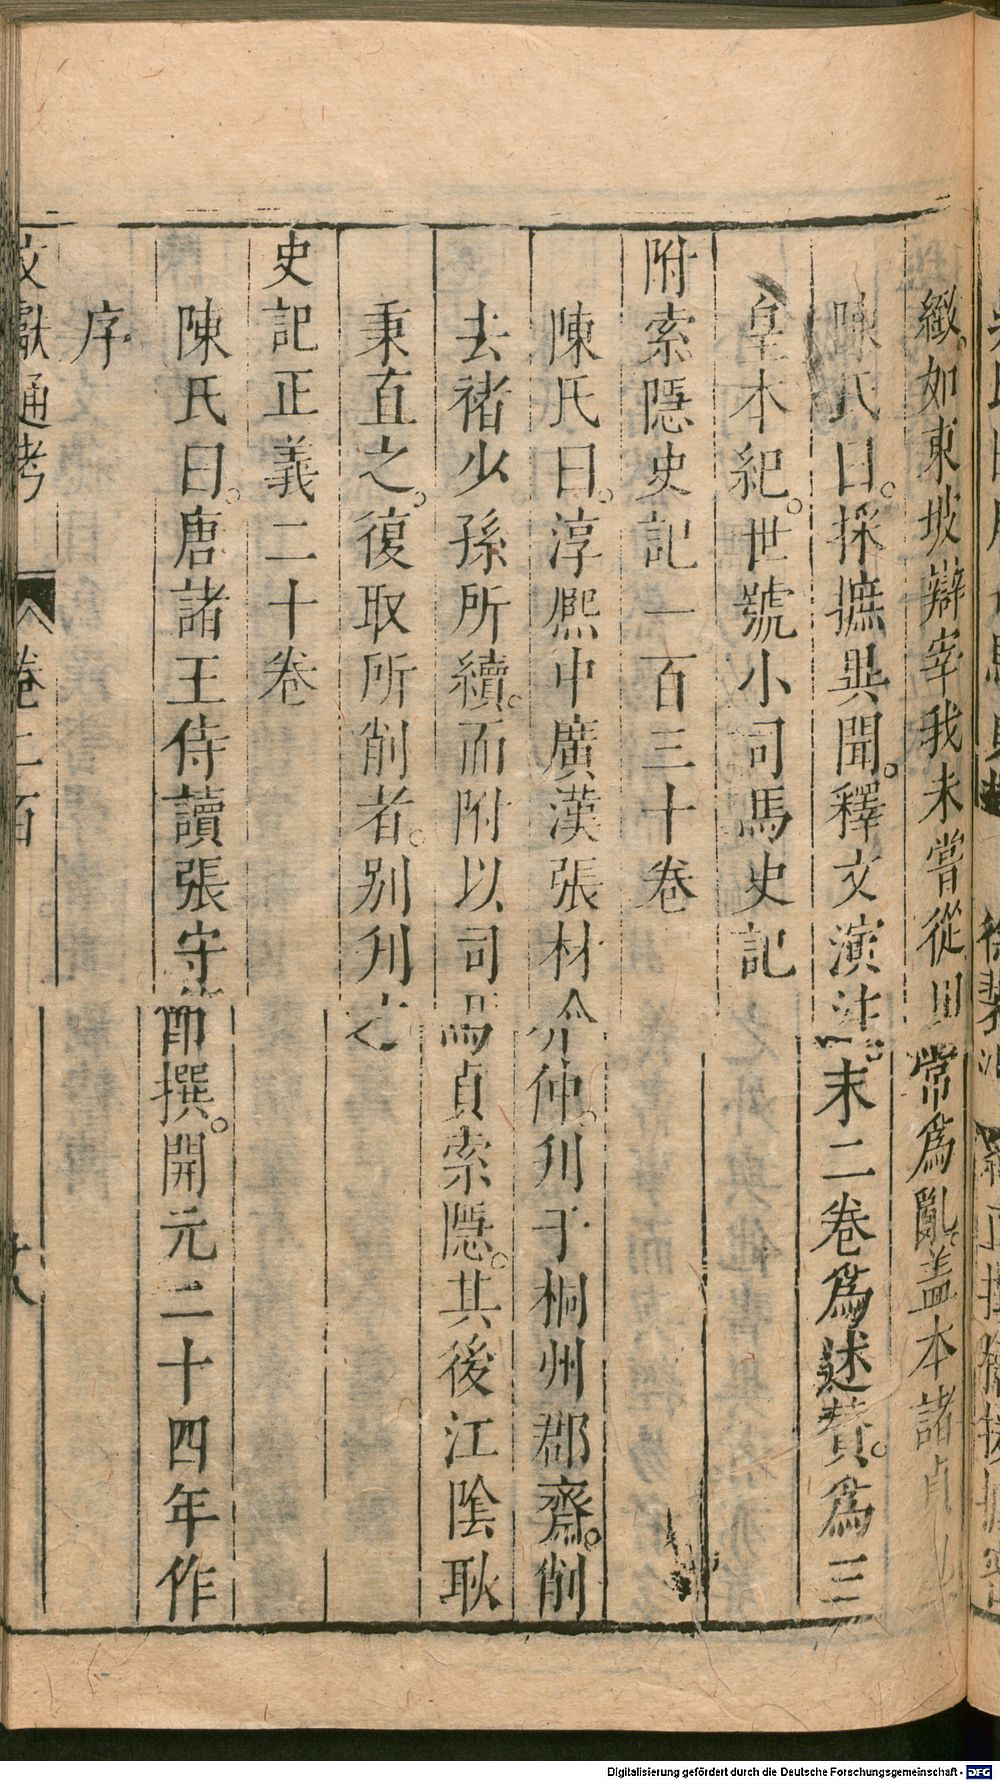 緻如東坡辯宰我未嘗從田常爲亂蓋本諸貞也
陳氏曰採摭異聞釋文演注末二卷爲述贊爲三
皇本紀世號小司馬史記
附索隱史記一百三十卷
陳氏曰淳熈中廣漢張材介仲刋于桐州郡齋削
去褚少孫所續而附以司馬貞索隱其後江陰耿
秉直之復取所削者别刋之
史記正義二十卷
陳氏曰唐諸王侍讀張守節撰開元二十四年作
序
文獻通考 卷二百
Digitalisierung gefördert durch die Deutsche Forschungsgemeinschaft - DFG